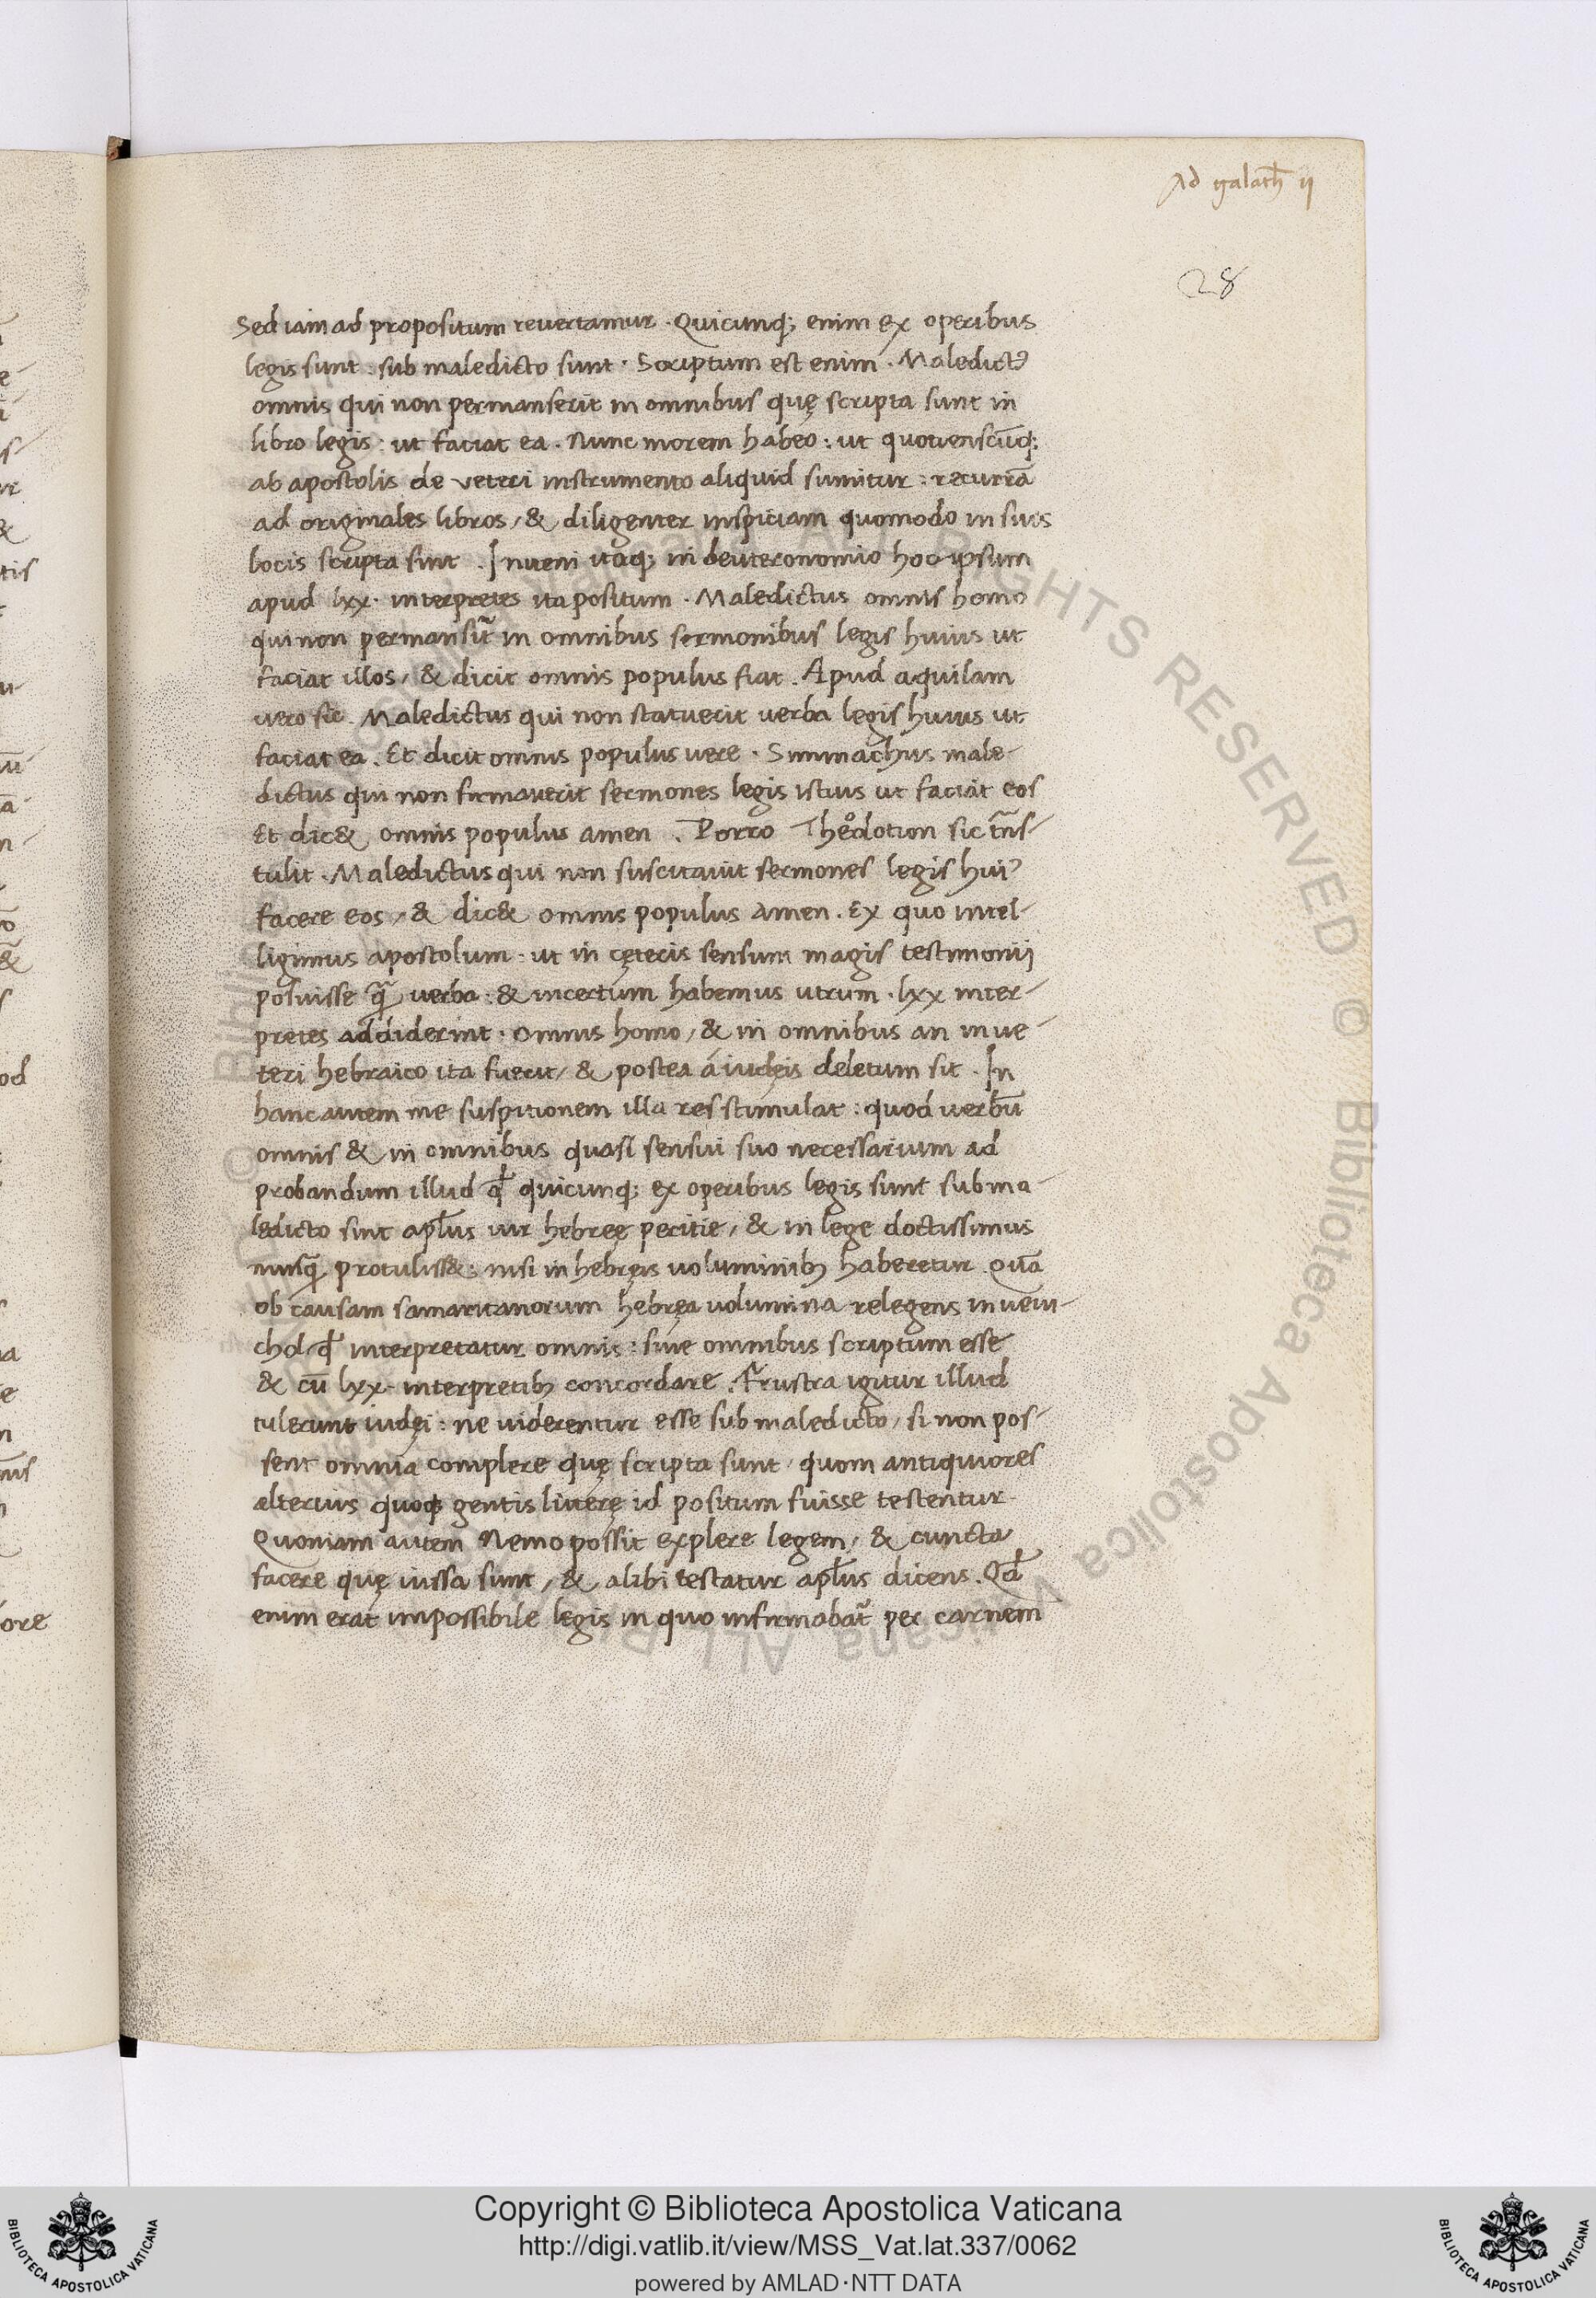 Ad galath̄ ij
28
Sed iam ad propositum revertamur . Quicunq; enim ex operibus
legis sunt : sub maledicto sunt . Scriptum est enim . Maledictꝰ
omnis qui non permanserit in omnibus quę scripta sunt in
libro legis : ut faciat ea . Nunc morem habeo : ut quotienscūq;
ab apostolis de veteri instrumento aliquid sumitur : recurrā
ad originales libros / & diligenter inspiciam quomodo in suis
locis scripta sint . Inveni itaq; in deuteronomio hoc ipsum
apud lxx . interpretes ita positum . Maledictus omnis homo
qui non permansit̃ in omnibus sermonibus legis huius ut
faciat illos / & dicit omnis populus fiat . Apud aquilam
vero sic . Maledictus qui non statuerit verba legis huius ut
faciat ea . Et dicit omnis populus vere . Simmachus male-
dictus qui non firmaverit sermones legis istius ut faciat eos
Et dic& omnis populus amen . Porro Theodotion sic trñs-
tulit . Maledictus qui non suscitavit sermones legis huiꝰ
facere eos / & dic& omnis populus amen . Ex quo intel-
ligimus apostolum : ut in cęteris sensum magis testimonij
posuisse q̃ verba : & incertum habemus utrum . lxx inter-
pretes addiderint . omnis homo / & in omnibus an in ve-
teri hebraico ita fuerit / & postea á iudęis deletum sit . In
hanc autem me suspitionem illa res stimulat : quod verbū
omnis & in omnibus quasi sensui suo necessarium ad
probandum illud qđ quicunq; ex operibus legis sunt sub ma-
ledicto sint apl̄us vir hebreę peritie / & in lege doctissimus
nusq̃ protuliss& : nisi in hebręis voluminibȝ haberetur . Quā
ob causam samaritanorum hebręa volumina relegens inveni-
chol qđ interpretatur omnis : sive omnibus scriptum esse
& cū lxx . interpretibȝ concordare . Frustra igitur illud
tulerunt iudęi : ne viderentur esse sub maledicto / si non pos-
sent omnia complere quę scripta sunt / quom antiquiores
alterius quoq; gentis litterę id positum fuisse testentur .
Quoniam autem Nemo possit explere legem / & cuncta
facere quę iussa sunt / & alibi testatur apl̄us dicens . Qđ
enim erat impossibile legis in quo infirmabat̃ per carnem
Copyright © Biblioteca Apostolica Vaticana
http://digi.vatlib.it/view/MSS_Vat.lat.337/0062
powered by AMLAD·NTT DATA